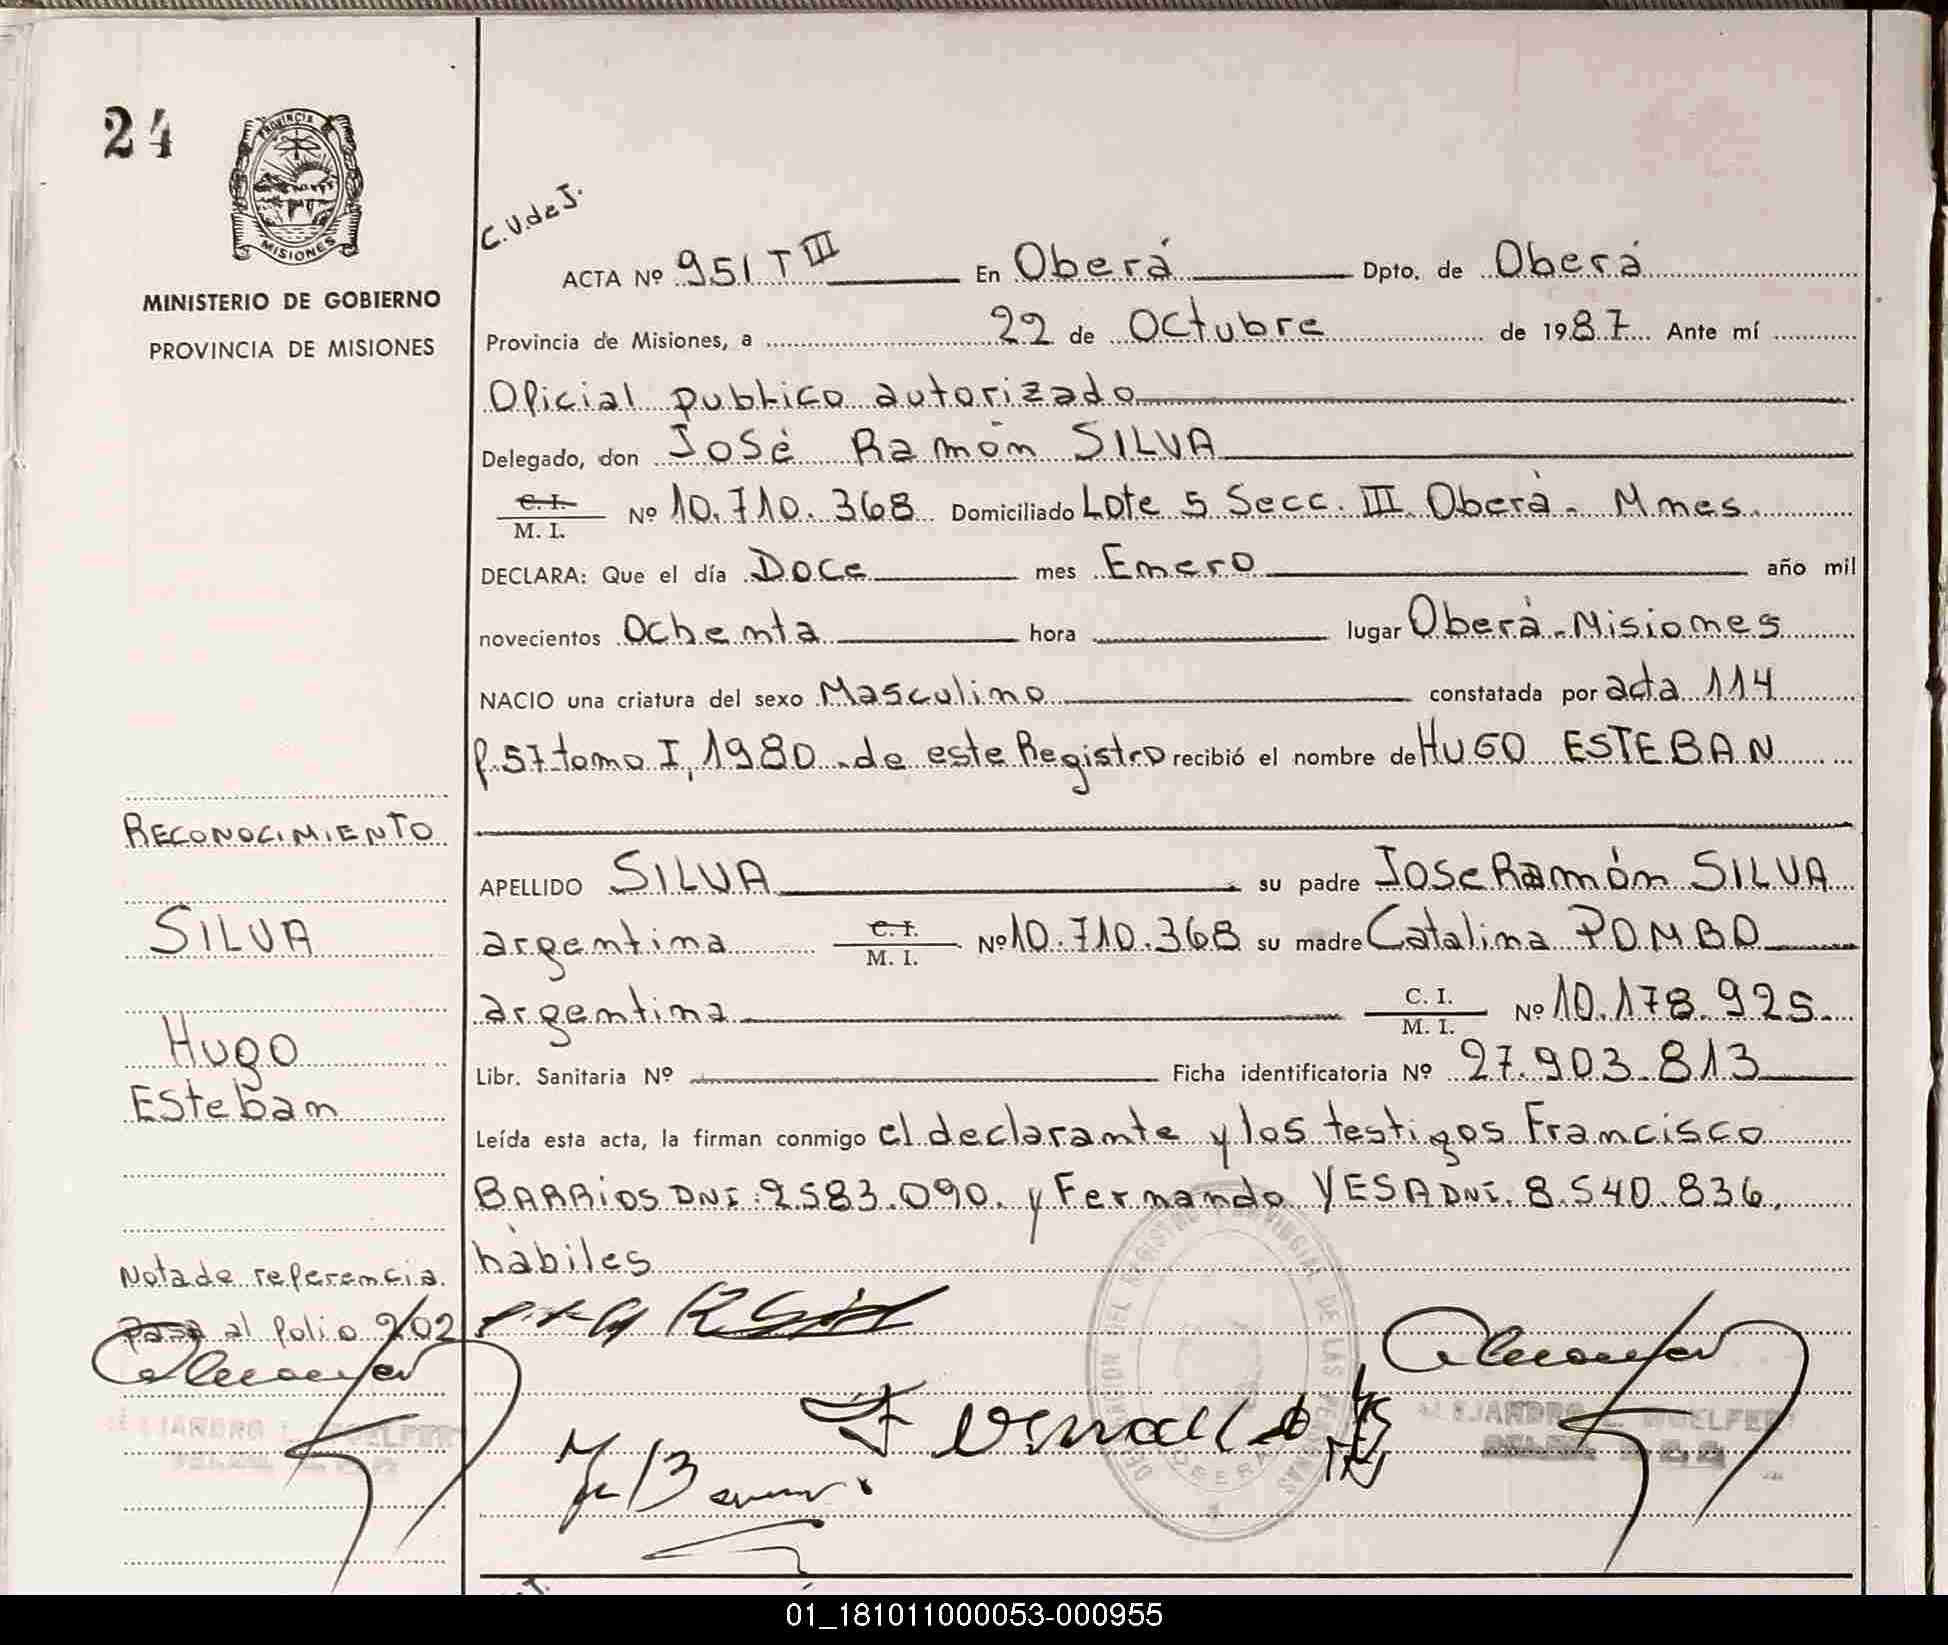 24
PROVINCIA
MISIONES
MINISTERIO DE GOBIERNO
PROVINCIA DE MISIONES
C.V.de J.
ACTA Nº 951 T III En Oberá Dpto. de Oberá
Provincia de Misiones, a 22 de Octubre de 1987. Ante mí
Oficial publico autorizado
Delegado, don José Ramón SILVA
C. I.
M. I. Nº 10.710.368 Domiciliado Lote 5 Secc. III Oberá- Mnes.
DECLARA: Que el día Doce mes Enero año mil
novecientos Ochenta hora lugar Oberá-Misiones
NACIO una criatura del sexo Masculino constatada por acta 114
f.57 tomo I, 1980 de este Registro recibió el nombre de HUGO ESTEBAN
APELLIDO SILVA su padre Jose Ramón SILVA
argentina C. I.
M. I. Nº 10.710.368 su madre Catalina POMBO
argentina C. I.
M. I. Nº 10.178.925
Libr. Sanitaria Nº Ficha identificatoria Nº 27.903.813
Leída esta acta, la firman conmigo el declarante y los testigos Francisco
BARRIOS DNI: 2.583.090. y Fernando YESA DNI. 8.540.836.
hábiles
RECONOCIMIENTO
SILVA
Hugo
Esteban
Nota de referencia.
Pasa al folio 202
OBERA
01_181011000053-000955